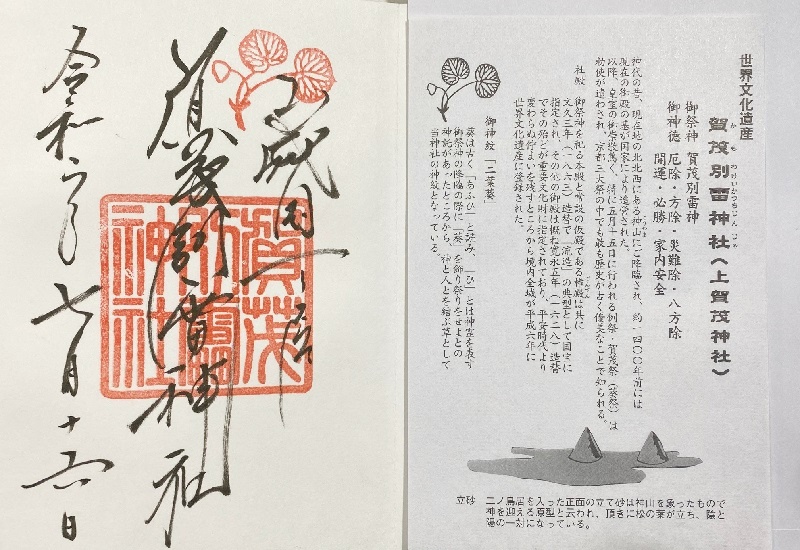 山城国一之宮
賀茂別雷神社
令和六年七月十六日
賀茂
別雷
神社
世界文化遺産
賀茂別雷神社(上賀茂神社)
か も わけいかづちじん じゃ
御祭神 賀茂別雷神
御神徳 厄除・方除・災難除・八方除
開運・必勝・家内安全
神代の昔、現在地の北北西にある神山にご降臨され、約一四〇〇年前には
現在の御殿の基が国家により造営された。
以降、皇室の御崇敬篤く、特に五月十五日に行われる例祭・賀茂祭(葵祭)は
勅使が遣わされ、京都三大祭の中でも最も歴史が古く優美なことで知られる。
社殿 御祭神を祀る本殿と常設の仮殿である権殿は共に
文久三年(一八六三)造替で「流造」の典型として国宝に
指定され、その他の御殿は概ね寛永五年(一六二八)造替
でその殆どが重要文化財に指定されており、平安時代より
変わらぬ佇まいを残すところから境内全域が平成六年に
世界文化遺産に登録された。
御神紋「二葉葵」
葵は古く「あふひ」と読み、「ひ」とは神霊を表す
御祭神の降臨の際に「葵」を飾り祭りをせよとの
神託があったところから、神と人とを結ぶ草として
当神社の神紋となっている。
立砂 二ノ鳥居を入った正面の立て砂は神山を象ったもので
神を迎える原型と云われ、頂きに松の葉が立ち、陰と
陽の一対になっている。